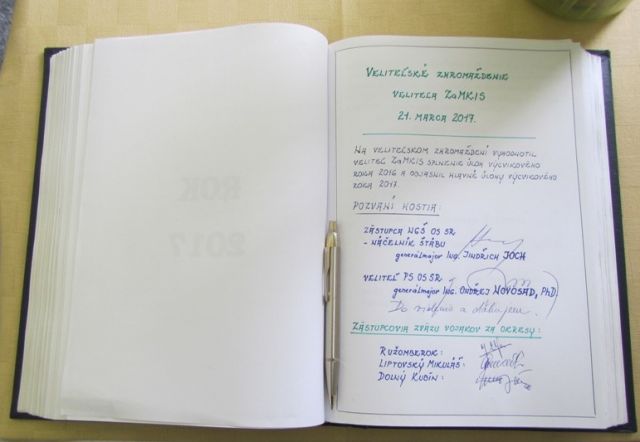 ROK
2017
VELITEĽSKÉ ZHROMAŽDENIE
VELITEĽA ZaMKIS
21. MARCA 2017.
NA VELITEĽSKOM ZHROMAŽDENÍ VYHODNOTIL
VELITEĽ ZaMKIS SPLNENIE ÚLOH VÝCVIKOVÉHO
ROKA 2016 A OBJASNIL HLAVNÉ ÚLOHY VÝCVIKOVÉHO
ROKA 2017.
POZVANÍ HOSTIA:
ZÁSTUPCA NGŠ OS SR
- NÁČELNÍK ŠTÁBU
generálmajor Ing. JINDŘICH JOCH
VELITEĽ PS OS SR
generálmajor Ing. ONDŘEJ NOVOSAD, PhD.
Do videnia a ďakujem.
ZÁSTUPCOVIA ZVÄZU VOJAKOV ZA OKRESY:
RUŽOMBEROK:
LIPTOVSKÝ MIKULÁŠ:
DOLNÝ KUBÍN: